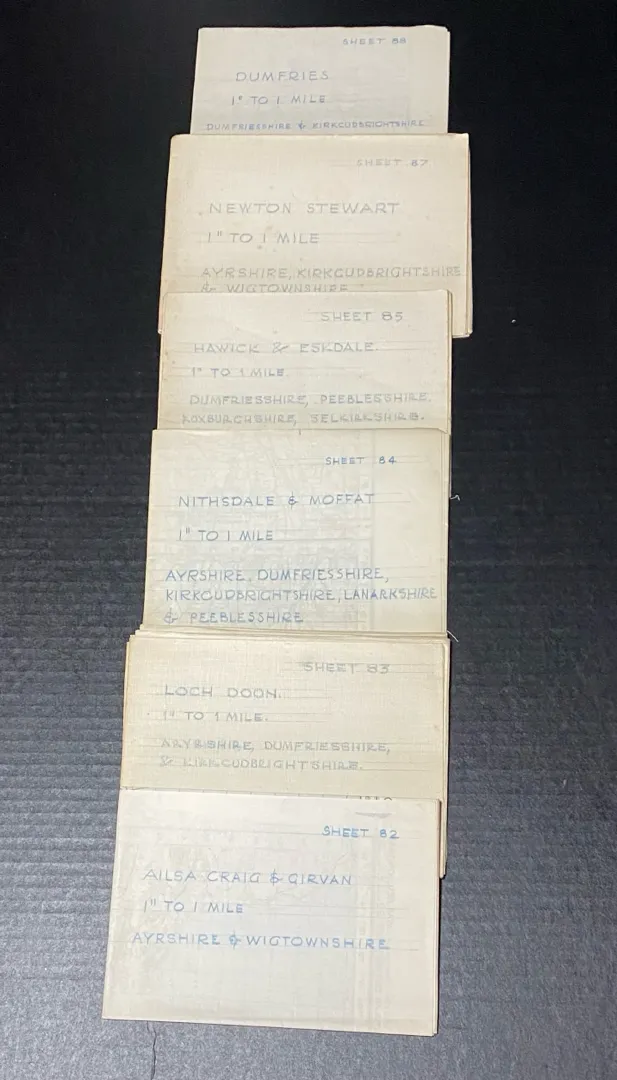 SHEET 88
DUMFRIES
1" TO 1 MILE
DUMFRIESSHIRE & KIRKCUDBRIGHTSHIRE
SHEET 87
NEWTON STEWART
1" TO 1 MILE
AYRSHIRE, KIRKCUDBRIGHTSHIRE
& WIGTOWNSHIRE
SHEET 85
HAWICK & ESKDALE.
1" TO 1 MILE
DUMFRIESSHIRE, PEEBLESSHIRE,
ROXBURGHSHIRE, SELKIRKSHIRE.
SHEET 84
NITHSDALE & MOFFAT
1" TO 1 MILE
AYRSHIRE, DUMFRIESSHIRE,
KIRKCUDBRIGHTSHIRE, LANARKSHIRE
& PEEBLESSHIRE
SHEET 83
LOCH DOON.
1" TO 1 MILE.
DUMFRIESSHIRE,
& KIRKCUDBRIGHTSHIRE.
SHEET 82
AILSA CRAIG & GIRVAN
1" TO 1 MILE
AYRSHIRE & WIGTOWNSHIRE